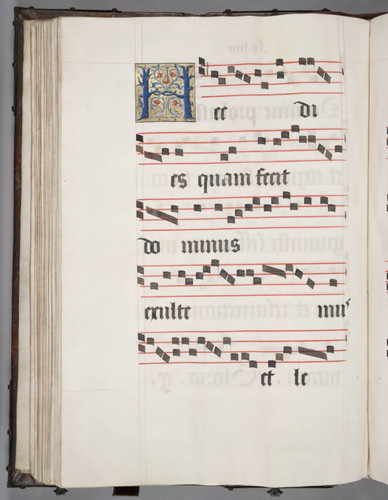 Hec di
es quam fecit
do minus
exulte mus
et le